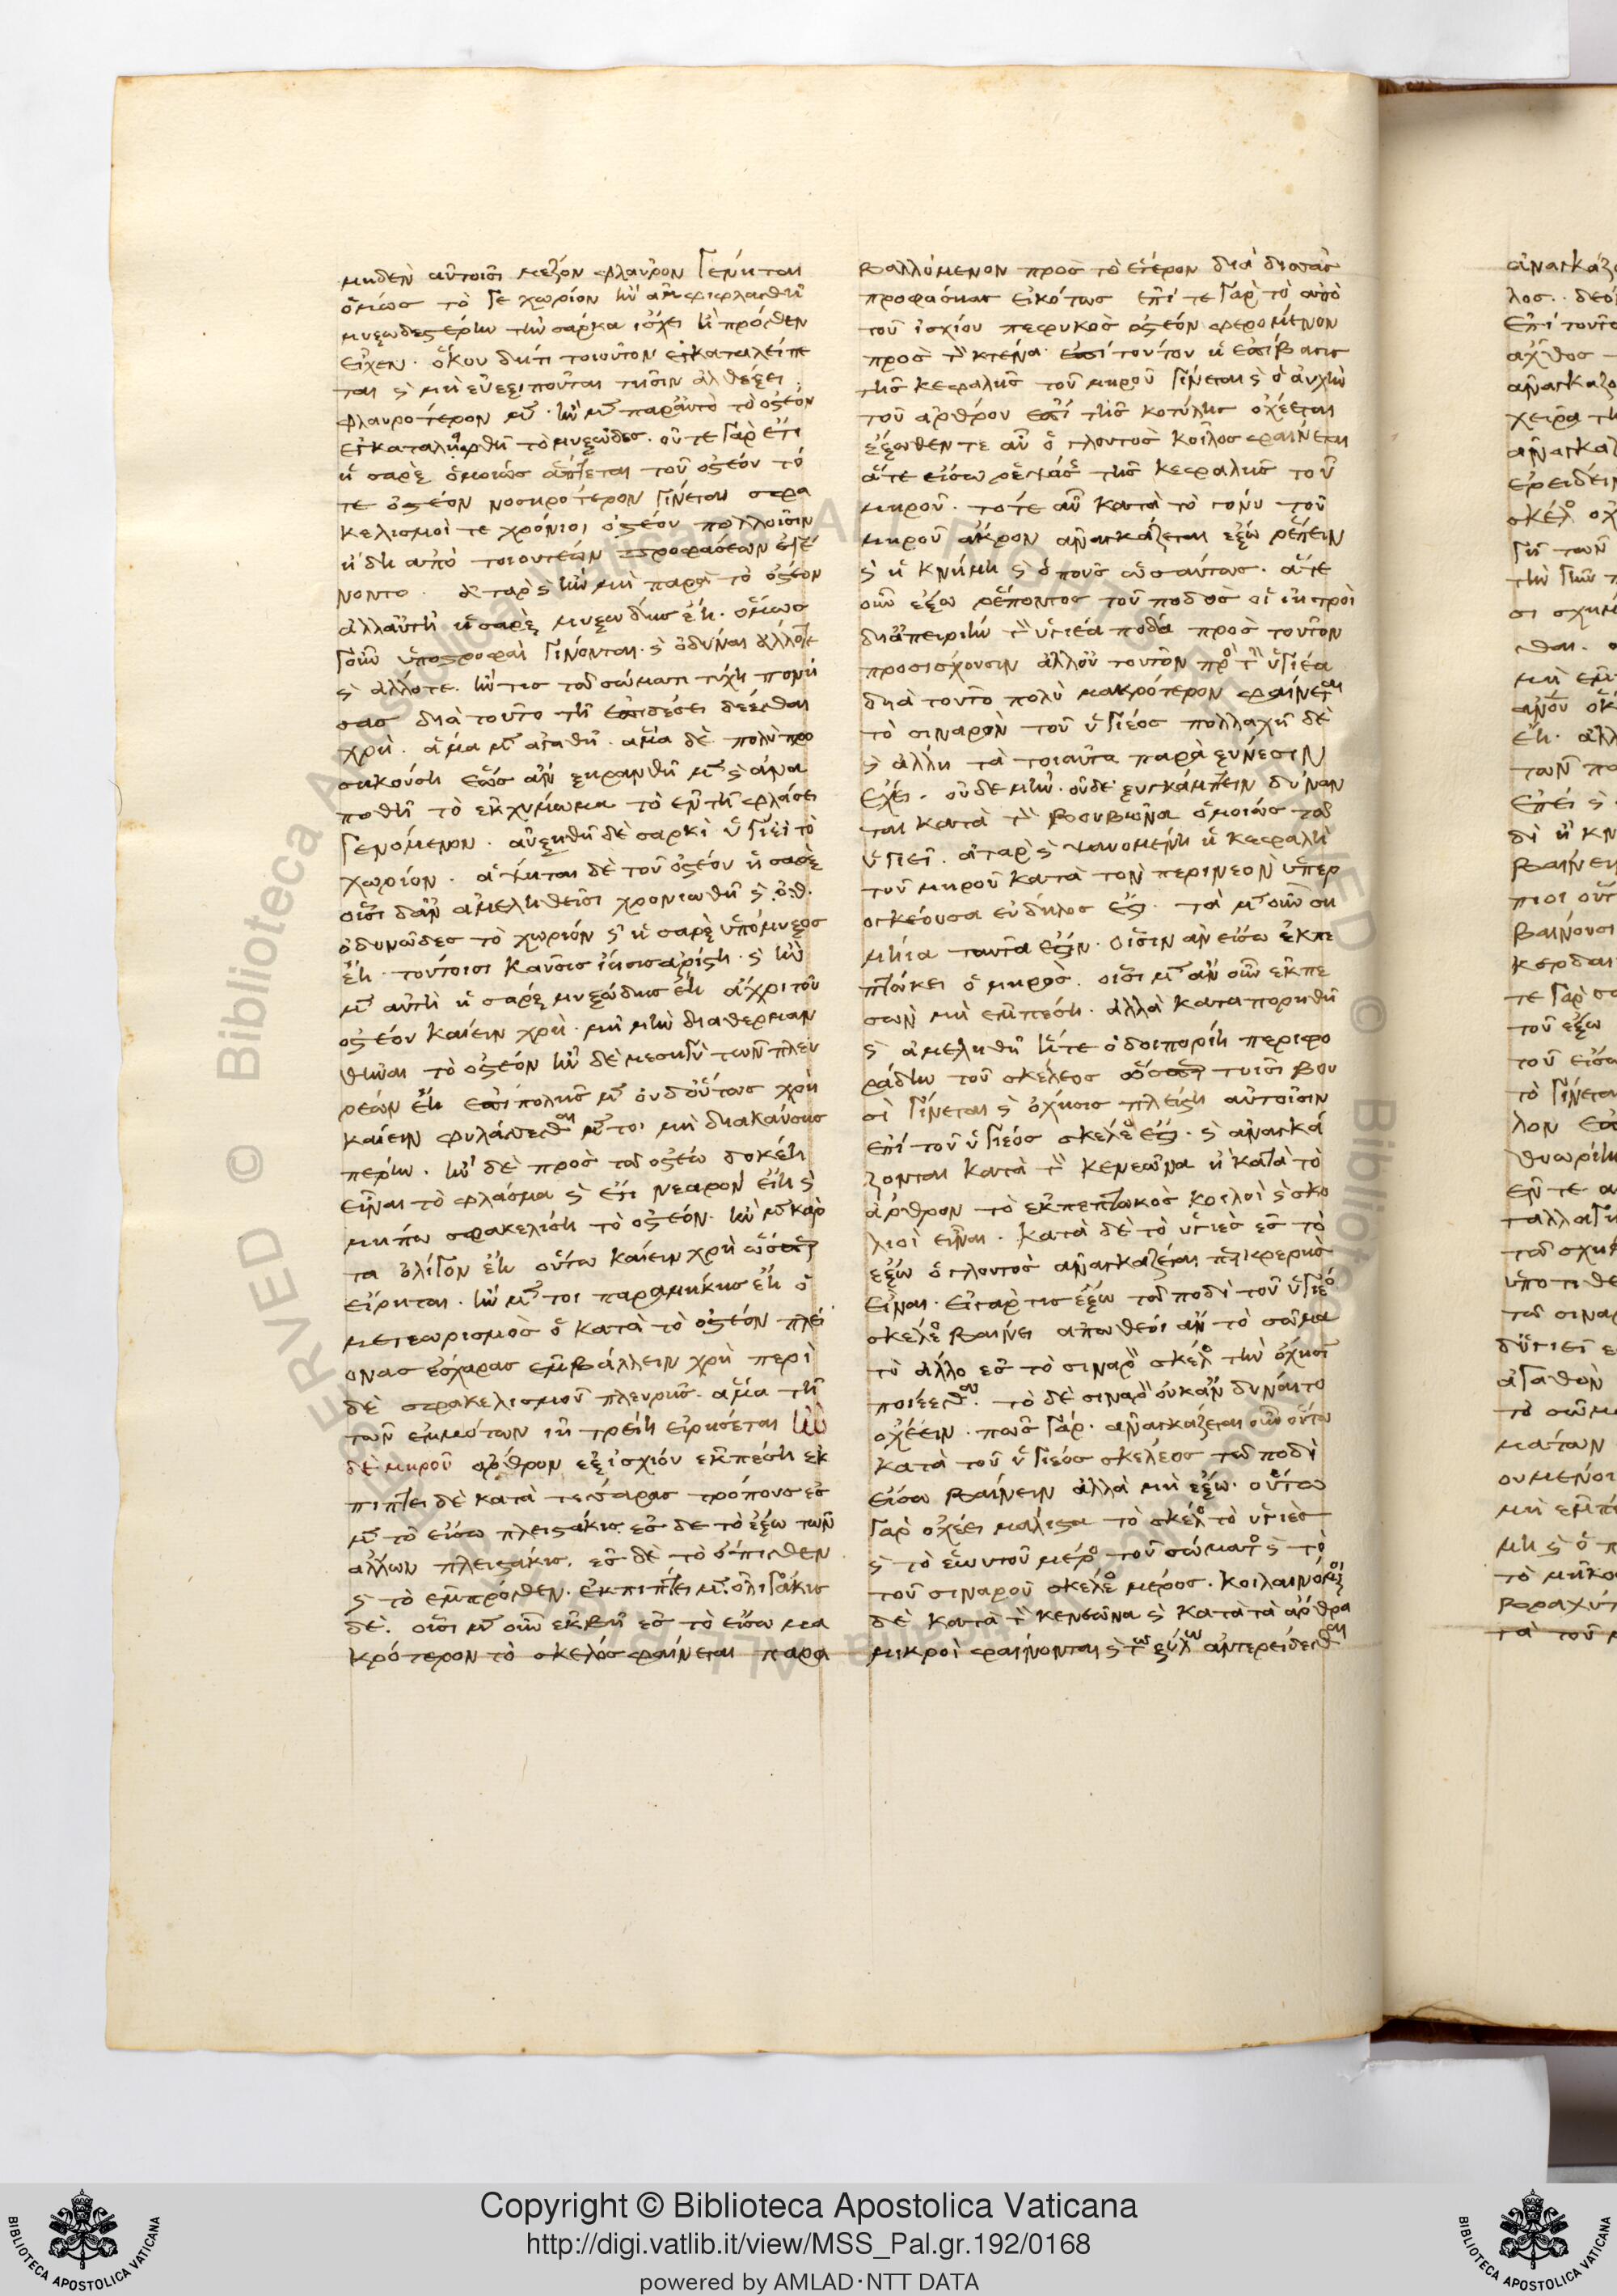 μηδὲν αὐτοῖσι μέζον φλαῦρον γένηται
ὁμῶς τό γε χωρίον ἢν ἀμφιφλασθῇ
μυξωδεστέρην τὴν σάρκα ἴσχει ἢ πρόσθεν
εἶχεν. ὅκου δή τι τοιοῦτον ἐγκαταλείπε
ται καὶ μὴ εὖ ἐξιποῦται τῆσιν ἀλθέξει
φλαυρότερον μὲν. ἢν μὲν παρ' αὐτὸ τὸ ὀστέον
ἐγκαταληφθῇ τὸ μυξῶδες. οὔτε γὰρ ἔτι
ἡ σὰρξ ὁμοίως ἅπτεται τοῦ ὀστέου τό
τε ὀστέον νοσηρότερον γίνεται σφα
κελισμοί τε χρόνιοι ὀστέου πολλοῖσιν
ἤδη ἀπὸ τοιουτέων προφασέων ἐγέ
νοντο. ἀτὰρ καὶ ἢν μὴ παρὰ τὸ ὀστέον
ἀλλ' αὐτὴ ἡ σὰρξ μυξώδης ἔῃ. ὅμως
γοῦν ὑποστροφαὶ γίνονται. καὶ ὀδύναι ἄλλοτε
καὶ ἄλλοτε. ἤν τις τῶ σώματι τύχη πονή
σας διὰ τοῦτο τῇ ἐπιδέσει δέεσθαι
χρὴ. ἅμα μὲν ἀγαθῇ. ἅμα δὲ πολὺ προ
σηκούσῃ ἕως ἂν ξηρανθῇ μὲν καὶ ἀνα
ποθῇ τὸ ἐκχύμωμα τὸ ἐν τῇ φλάσει
γενόμενον. αὐξηθῇ δὲ σαρκὶ ὑγιέϊ τὸ
χωρίον. ἅψηται δὲ τοῦ ὀστέου ἡ σὰρξ
οἷσι δ' ἂν ἀμεληθεῖσι χρονιωθῇ καὶ
ὀδυνῶδες τὸ χωρίον καὶ ἡ σὰρξ ὑπόμυξος
ἔῃ. τούτοισι καῦσις ἴησις ἀρίστη. καὶ ἢν
μὲν αὐτὴ ἡ σὰρξ μυξώδης ἔῃ ἄχρι τοῦ
ὀστέου καίειν χρὴ. μὴ μὴν διαθερμαν
θῆναι τὸ ὀστέον ἢν δὲ μεσηγὺ τῶν πλευ
ρέων ἔῃ ἐπιπολῆς μὲν οὐδ' οὕτως χρὴ
καίειν φυλάσσεσθαι μέντοι μὴ διακαύσῃς
πέρην. ἢν δὲ πρὸς τῶ ὀστέω δοκέῃ
εἶναι τὸ φλάσμα καὶ ἔτι νεαρὸν ἔῃ καὶ
μήπω σφακελίσῃ τὸ ὀστέον. ἢν μὲν κάρ
τα ὀλίγον ἔῃ οὕτω καίειν χρὴ ὥσπερ
εἴρηται. ἢν μέντοι παραμήκης ἔῃ ὁ
μετεωρισμὸς ὁ κατὰ τὸ ὀστέον πλεί
ονας ἐσχάρας ἐμβάλλειν χρὴ περὶ
δὲ σφακελισμοῦ πλευρῆς. ἅμα τῇ
τῶν ἐμμότων ἰητρείῃ εἰρήσεται ἢν
δὲ μηροῦ ἄρθρον ἐξ ἰσχίου ἐκπέσῃ ἐκ
πίπτει δὲ κατὰ τέσσαρας τρόπους ἐς
μὲν τὸ εἴσω πλειστάκις. ἐς δὲ τὸ ἔξω τῶν
ἄλλων πλειστάκις. ἐς δὲ τὸ ὄπισθεν
καὶ τὸ ἔμπροσθεν. ἐκπίπτει μὲν ὀλιγάκις
δέ. οἷσι μὲν οὖν ἐκβῇ ἐς τὸ εἴσω μα
κρότερον τὸ σκέλος φαίνεται παρα
βαλλόμενον πρὸς τὸ ἕτερον διὰ δισσὰς
προφάσιας εἰκότως ἐπί τε γὰρ τὸ ἀπὸ
τοῦ ἰσχίου πεφυκὸς ὀστέον φερόμενον
πρὸς τὸν κτένα ἐπὶ τοῦτον ἡ ἐπίβασις
τῆς κεφαλῆς τοῦ μηροῦ γίνεται καὶ ὁ αὐχὴν
τοῦ ἄρθρου ἐπὶ τῆς κοτύλης ὀχέεται
ἔξωθέν τε αὖ ὁ γλουτὸς κοῖλος φαίνεται
ἅτε εἴσω ῥεψάσης τῆς κεφαλῆς τοῦ
μηροῦ. τό τε αὖ κατὰ τὸ γόνυ τοῦ
μηροῦ ἄκρον ἀναγκάζεται ἔξω ῥέπειν
καὶ ἡ κνήμη καὶ ὁ ποὺς ὡσαύτως. ἅτε
οὖν ἔξω ῥέποντος τοῦ ποδὸς οἱ ἰητροὶ
δι' ἀπειρίην τὸν ὑγιέα πόδα πρὸς τοῦτον
προσίσχουσιν ἀλλ' οὐ τοῦτον πρὸς τὸν ὑγιέα
διὰ τοῦτο πολὺ μακρότερον φαίνεται
τὸ σιναρὸν τοῦ ὑγιέος πολλαχῇ δὲ
καὶ ἄλλῃ τὰ τοιαῦτα παρὰ ξύνεσιν
ἔχει. οὐδὲ μὴν. οὐδὲ ξυγκάμπτειν δύναν
ται κατὰ τὸν βουβῶνα ὁμοίως τῶ
ὑγιεῖ. ἀτὰρ καὶ ψαυομένη ἡ κεφαλὴ
τοῦ μηροῦ κατὰ τὸν περίνεον ὑπερ
ογκέουσα εὔδηλος ἐστι. τὰ μὲν οὖν ση
μήια ταῦτα ἐστιν. οἷσιν ἂν εἴσω ἐκπε
πτώκει ὁ μηρὸς. οἷσι μὲν ἂν οὖν ἐκπε
σὼν μὴ ἐμπέσῃ. ἀλλὰ καταπορηθῇ
καὶ ἀμεληθῇ ἥ τε ὁδοιπορίη περιφο
ράδην τοῦ σκέλεος ὥσπερ τοῖσι βου
σὶ γίνεται καὶ ὄχησις πλείστη αὐτοῖσιν
ἐπὶ τοῦ ὑγιέος σκέλεος ἐστι. καὶ ἀναγκά
ζονται κατὰ τὸν κενεῶνα ἢ κατὰ τὸ
ἄρθρον τὸ ἐκπεπτωκὸς κοῖλοι καὶ σκο
λιοὶ εἶναι. κατὰ δὲ τὸ ὑγιὲς ἐς τὸ
ἔξω ὁ γλουτὸς ἀναγκάζεται περιφερὴς
εἶναι. εἰ γάρ τις ἔξω τῶ ποδὶ τοῦ ὑγιέος
σκέλεος βαίνει ἀπωθέοι ἂν τὸ σῶμα
τὸ ἄλλο ἐς τὸ σιναρὸν σκέλος τὴν ὄχησιν
ποιέεσθαι. τὸ δὲ σιναρὸν οὐκ ἂν δύναιτο
ὀχέειν. πῶς γάρ. ἀναγκάζεται οὖν οὕτω
κατὰ τοῦ ὑγιέος σκέλεος τῶ ποδὶ
εἴσω βαίνειν ἀλλὰ μὴ ἔξω. οὕτω
γὰρ ὀχέει μάλιστα τὸ σκέλος τὸ ὑγιὲς
καὶ τὸ ἑωυτοῦ μέρος τοῦ σώματος καὶ τὸ
τοῦ σιναροῦ σκέλεος μέρος. κοιλαινόμενοι
δὲ κατὰ τὸν κενεῶνα καὶ κατὰ τὰ ἄρθρα
μικροὶ φαίνονται καὶ τῶ ξύλω ἀντερείδεσθαι
Copyright © Biblioteca Apostolica Vaticana
http://digi.vatlib.it/view/MSS_Pal.gr.192/0168
powered by AMLAD·NTT DATA
BIBLIOTECA APOSTOLICA VATICANA
BIBLIOTECA APOSTOLICA VATICANA